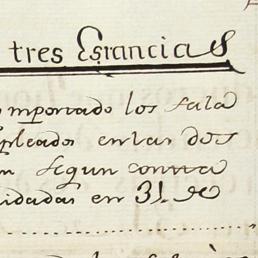 tres Estancias
importado los sala
pleados en las dos
n segun consta
idadas en 31. de